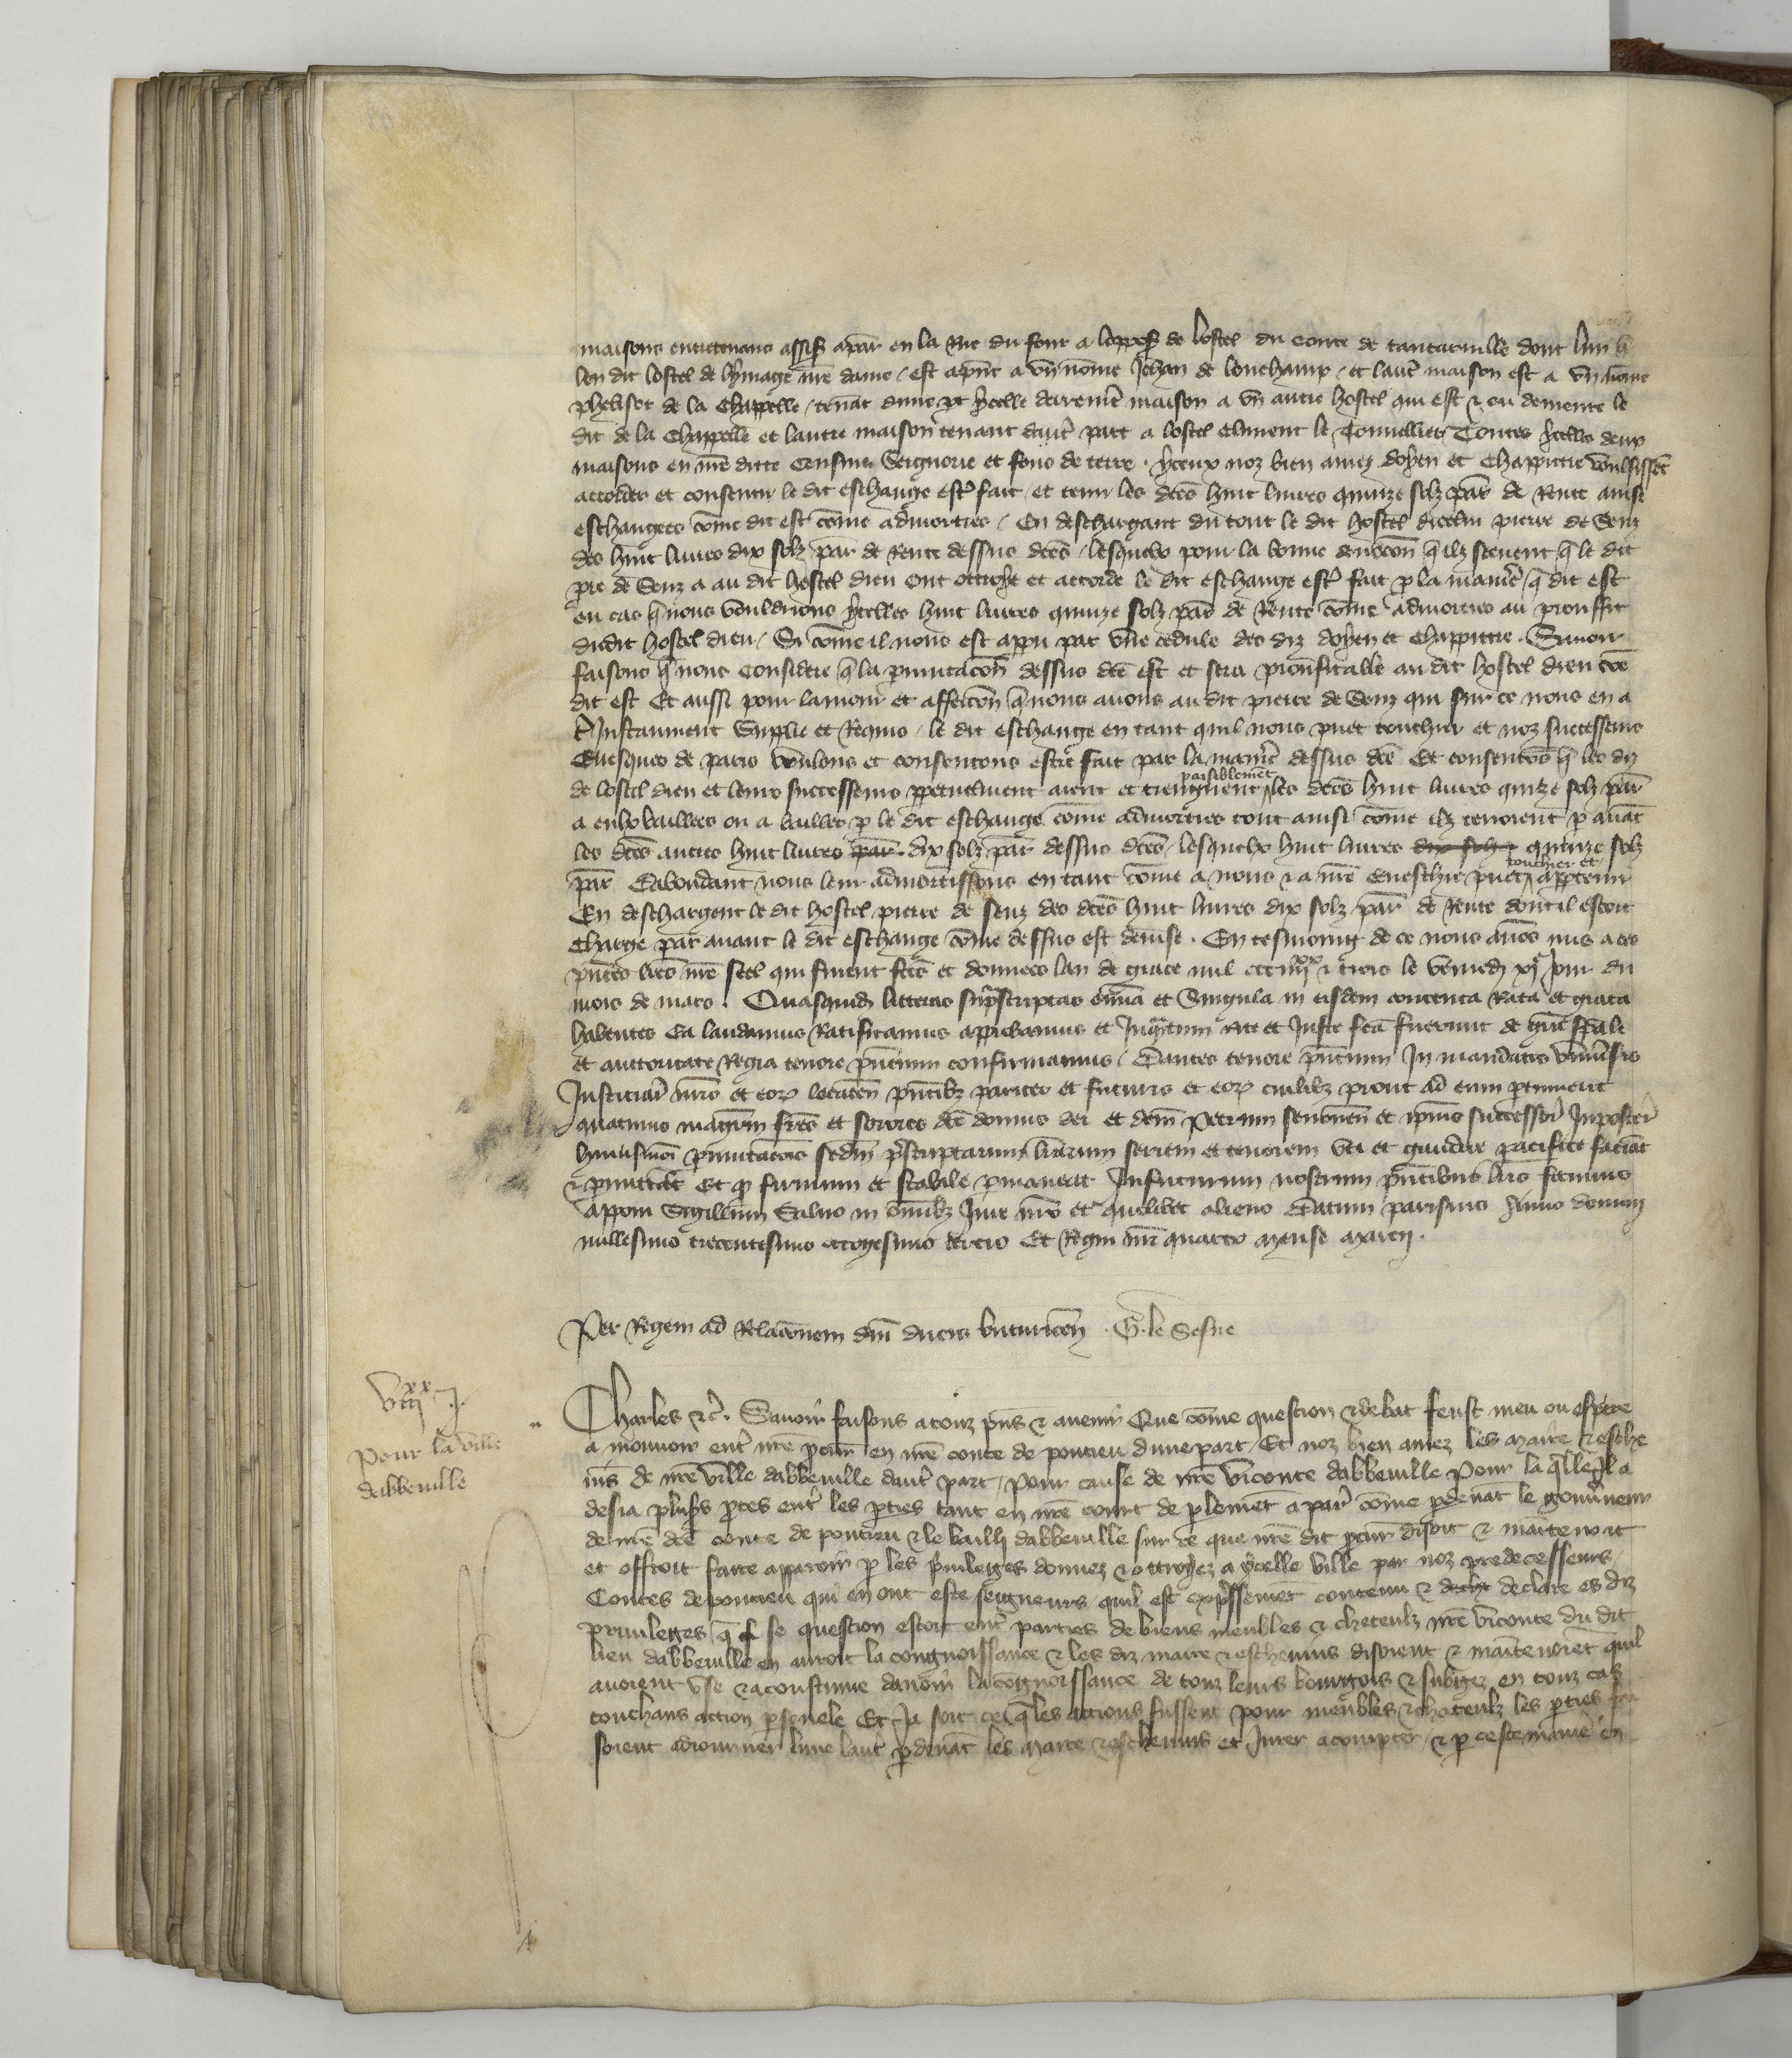 maisons entretenans assis a par̃ en la Rue du four a loppos de lostel du conte de tantaruille dont lun q̃
lon dit lostel de lymage nr̃e dame / est apñt a vn nõme Jehan de lonchamp / et laut̃ maison est a vn nõme
phelisot de la Chappelle / tenãt dune pt ycelle derrenie᷑ maison a vn autre hostel qui est ⁊ ou demeure le
dit de la Chappelle et lautre maison tenant daut̃ part a lostel Climent le Tonnellier Toutes ycelles deux
maisons en nr̃e ditte Censiue Seignorie et fons de terre . yceux noz bien amez doyen et Chappitre voulsissẽt
accorder et consentir le dit eschange estr̃ fait / et tenir les dc̃es huit liures quinze solz par̃ de Rente ainsi
eschangees cõme dit est cõme admorties / En deschargant du tout le dit hostel dicelui pierre de Senz
des huit liures dix solz par̃ de Rente dessus dc̃es / lesquelx pour la bonne deuocõn q̃ ilz sceuent q̃ le dit
pre de Senz a au dit hostel dieu Ont ottroye et accorde le dit eschange estr̃ fait p la manie᷑ / q̃ dit est
en cas q̃ nous vouldrions ycelles huit liures quinze solz par̃ de Rente cõme admorties au prouffit
dudit hostel dieu / Si cõme il nous est appu par vne cedule des diz doyen et Chappitre . Sauoir
faisons q̃ nous Considere q̃ la pmutacõn dessus dc̃e est et sera prouffitable au dit hostel dieu cõe
dit est Et aussi pour lamour et affeccõn q̃ nous auons au dit pierre de Senz qui sur ce nous en a
Instaument Supplie et Requis / le dit eschange en tant quil nous puet touchier et noz successeurs
Euesques de paris voulons et consentons estre fait par la manie᷑ dessus dc̃e Et consentõs q̃ les diz
de lostel dieu et leurs successeurs ppetuelment aient et tiengnent paisiblemẽt les dc̃es huit liures quĩze solz par̃
a eulx baillees ou a baillier p le dit eschange cõme admorties tout ainsi cõme ilz tenoient p auãt
les dc̃es autres huit liures par̃ dix solz par̃ dessus dc̃es / lesquelx huit liures dix solz quinze solz
par̃ Dabondant nous leur admortissons en tant cõme a nous ⁊ a nr̃e Eueschie puet touchier et apptenir
En deschargent le dit hostel pierre de senz des dc̃es huit liures dix solz par̃ de Rente dont il estoit
Charge par auant le dit eschange cõme dessus est deuise . En tesmoing de ce nous auõs mis a ces
pñtes lrẽs nr̃e seel qui furent fc̃es et donnees lan de grace mil ccc iiijxx ⁊ trois le vendredi xje Jour du
mois de mars . Quasquid̃ litteras supᵃscriptas õmia et Singula in eisdem contenta Rata et grata
habentes Ea laudamus Ratificamus approbamus et Inqᵃntum rite et Juste fc̃a fuerunt de grãᵉ spãle
et auctoritate Regia tenore pñtium confirmamus / Dantes tenore pñtium In mandatis vniũsis
Justiciar̃ nr̃is et eoꝝ locatẽn pñtibꝫ pariter et futuris et eoꝝ cuilibꝫ prout ad eum ptinuerit
Quatinus magrũm frẽs et sorores dc̃e domus dei et dc̃m Petrum senonẽn et ipius successor̃ Inposter̃
huiusmõi pmutacõis scdm pscriptarum lrãrum seriem et tenorem vti et gaudere pacifice faciãt
⁊ pmittãt Et q firmum et stabile pmaneat Infuturum nostrum pñtibus lrĩs fecimus
Apponi Sigillum Saluo in õmibꝫ Jure nr̃o et quolibet alieno Datum parisius Anno domini
millesimo trecentesimo octogesimo tercio Et Regni nr̃i quarto Mense Marcij .
Per Regem ad Relacõnem dñi ducis bituricẽn . G. le Sesne
viijxx j.
Pour la ville
dabbeuille
Charles ⁊c̃. Sauoir faisons a touz pñs ⁊ auenir Que cõme question ⁊ debat feust meu ou espere
a mouuoir ent̃ nr̃e pcur̃ en nr̃e conte de pontieu dune part / Et noz bien amez les Maire ⁊ esche
uĩs de nr̃e ville dabbeuille daut̃ part / Pour cause de nr̃e viconte dabbeuille Pour la q̃lle Il a
desia pluss pces ent̃ les pties tant en nr̃e court de plemẽt a par̃ cõme pdeuãt le gouũneur
de nr̃e dc̃e conte de pontieu ⁊ le bailli dabbeuille sur ce que nr̃e dit pcur̃ disoit ⁊ maĩtenoit
et offroit faire apparoir p les priuileiges donnez ⁊ ottroyez a ycelle ville par noz predecesseurs /
Contes de pontieu qui en ont este seigneurs quil est expssemẽt contenu ⁊ declare es diz
priuileiges / q̃ se question estoit ent̃ parties de biens meubles ⁊ chateulz nr̃e viconte du dit
lieu dabbeuille en auroit la congnoissance ⁊ les diz maire ⁊ escheuins disoient ⁊ maĩtenoiẽt quil
auoient vse ⁊ acoustume dauoir la cõgnoissance de touz leurs bourgois ⁊ subgez en touz cas
touchans action psonele Et Ja soit ce q̃ les actions fussent pour meubles ⁊ chateulz les pties fai
soient adiourner lune laut̃ pdeuãt les Maire ⁊ escheuins et Jurer a compter / ⁊ p ceste manie᷑ en